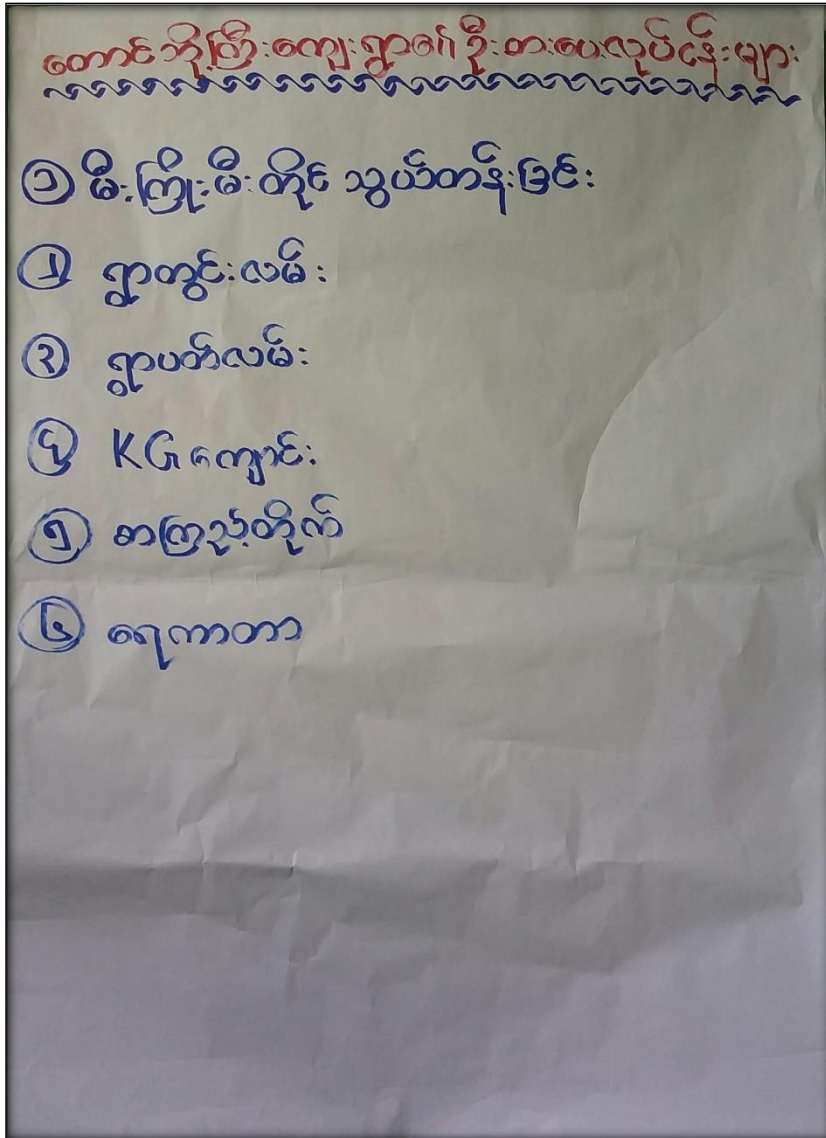 တောင်ဘို့ကြီးကျေးရွာ၏ဦးစားပေးလုပ်ငန်းများ
၁ မီးကြိုးမီးတိုင် သွယ်တန်းခြင်း
၂ ရွာတွင်းလမ်း
၃ ရွာပတ်လမ်း
၄ KG ကျောင်း
၅ စာကြည့်တိုက်
၆ ရေကာတာ